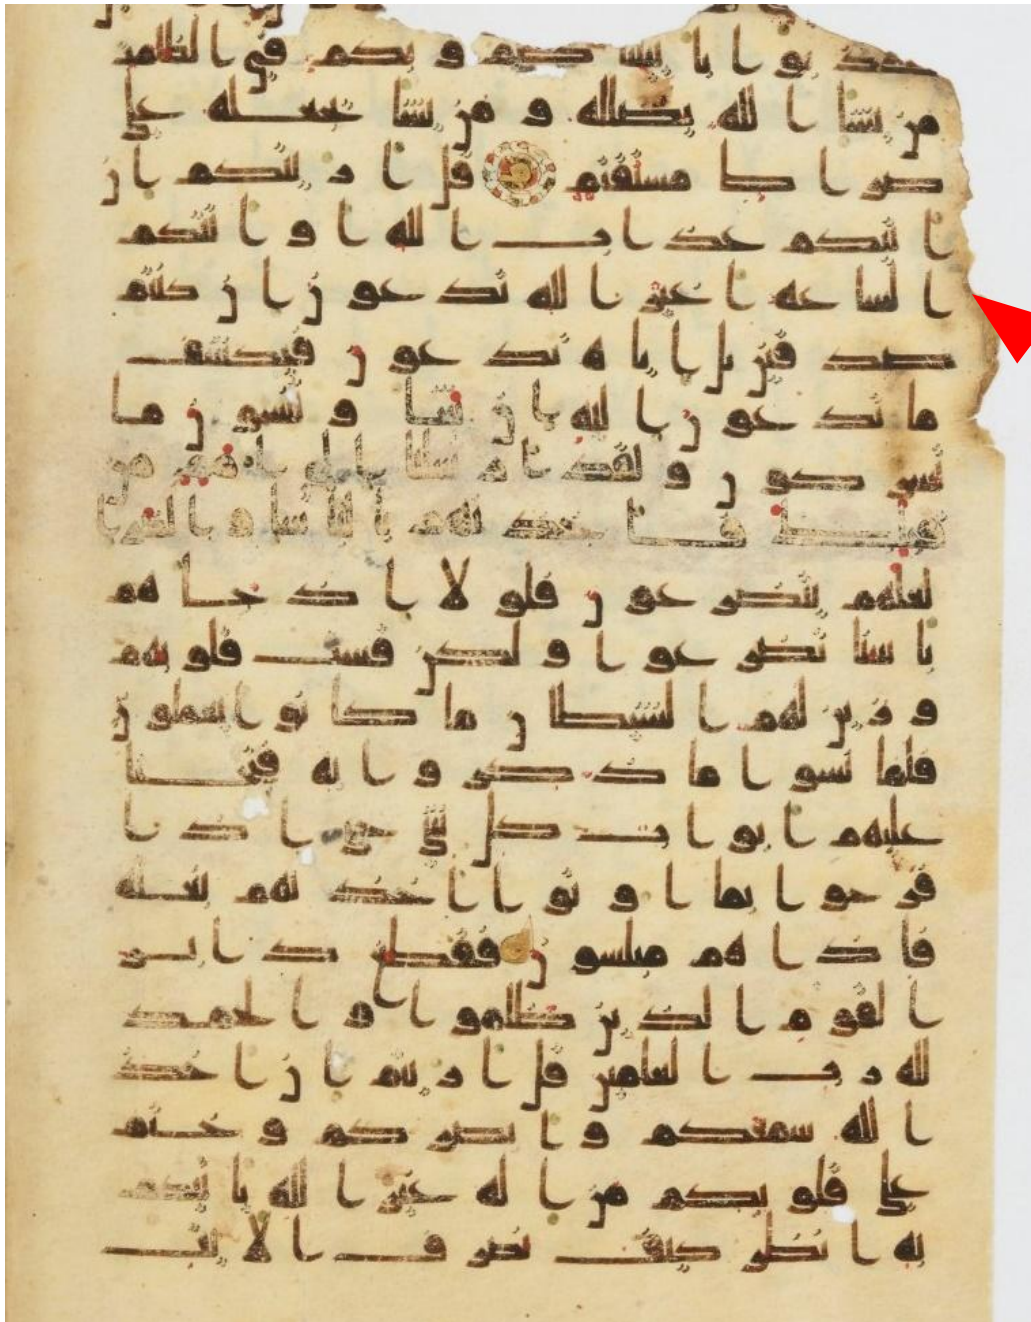 كذبوا باييتنا صم وبكم في الظلمت
من يشا الله يضلله ومن يشا يجعله على
صراط مستقيم قل اريتكم ان
اتيكم عذاب الله او اتتكم
الساعه اغير الله تدعون ان كنتم
صدقين بل اياه تدعون فيكشف
ما تدعون اليه ان شا وتنسون ما
تشركون ولقد ارسلنا الى امم من
قبلك فاخذنهم بالباسا والضرا
لعلهم يتضرعون فلولا اذ جاهم
باسنا تضرعوا ولكن قست قلوبهم
وزين لهم الشيطان ما كانوا يعملون
فلما نسوا ما ذكروا به فتحنا
عليهم ابواب كل شي حتى اذا
فرحوا بما اوتوا اخذنهم بغته
فاذا هم مبلسون فقطع دابر
القوم الذين ظلموا والحمد
لله رب العلمين قل اريتم ان اخذ
الله سمعكم وابصركم وختم
على قلوبكم من اله غير الله ياتيكم
به انظر كيف نصرف الايت